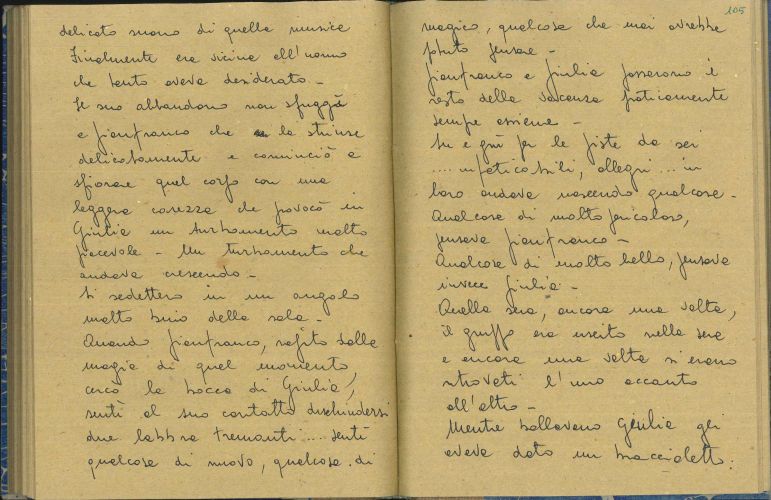 delicato suono di quella musica
Finalmente era vicina all'uomo
che tanto aveva desiderato –
Il suo abbandono non sfuggì
a Gianfranco che la strinse
delicatamente e cominciò a
sfiorare quel corpo con una
leggera carezza che provocò in
Giulia un turbamento molto
piacevole – Un turbamento che
andava crescendo –
Si sedettero in un angolo
molto buio della sala –
Quando Gianfranco, rapito dalla
magia di quel momento,
cercò la bocca di Giulia,
sentì al suo contatto dischiudersi
due labbra tremanti .... sentì
qualcosa di nuovo, qualcosa di
105
magico, qualcosa che mai avrebbe
potuto pensare –
Gianfranco e Giulia passarono il
resto della vacanza praticamente
sempre assieme –
Su e giù per le piste da sci
.... infaticabili, allegri ... in
loro andava nascendo qualcosa –
Qualcosa di molto pericoloso,
pensava Gianfranco –
Qualcosa di molto bello, pensava
invece Giulia –
Quella sera, ancora una volta,
il gruppo era uscito nella sera
e ancora una volta si erano
ritrovati l'uno accanto
all'altro –
Mentre ballavano Giulia gli
aveva dato un braccialetto.